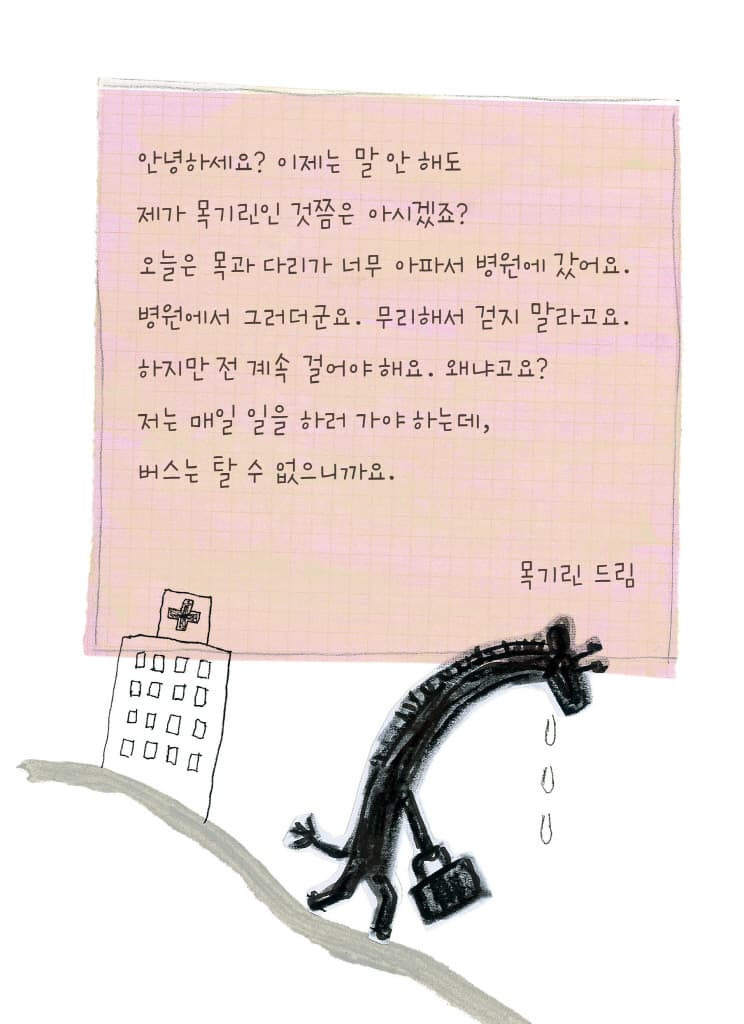 안녕하세요? 이제는 말 안 해도
제가 목기린인 것쯤은 아시겠죠?
오늘은 목과 다리가 너무 아파서 병원에 갔어요.
병원에서 그러더군요. 무리해서 걷지 말라고요.
하지만 전 계속 걸어야 해요. 왜냐고요?
저는 매일 일을 하러 가야 하는데,
버스는 탈 수 없으니까요.
목기린 드림